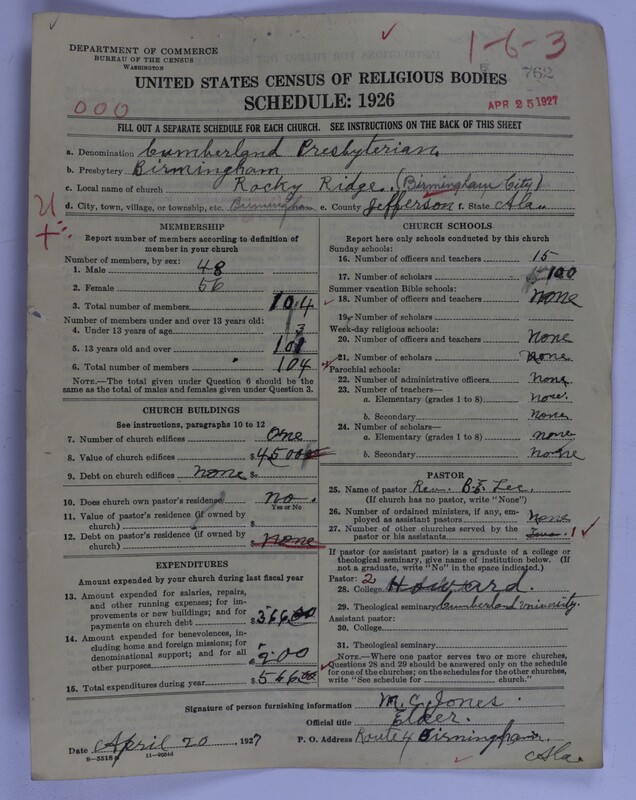 DEPARTMENT OF COMMERCE
BUREAU OF THE CENSUS
WASHINGTON
1-6-3
762
UNITED STATES CENSUS OF RELIGIOUS BODIES
SCHEDULE: 1926
000
APR 25 1927
FILL OUT A SEPARATE SCHEDULE FOR EACH CHURCH. SEE INSTRUCTIONS ON THE BACK OF THIS SHEET
a. Denomination Cumberland Presbyterian
b. Presbytery Birmingham
c. Local name of church Rocky Ridge. (Birmingham City)
d. City, town, village, or township, etc. Birmingham e. County Jefferson f. State Ala.
MEMBERSHIP
Report number of members according to definition of member in your church
Number of members, by sex:
1. Male 48
2. Female 56
3. Total number of members 104
Number of members under and over 13 years old:
4. Under 13 years of age 3
5. 13 years old and over 101
6. Total number of members 104
NOTE.—The total given under Question 6 should be the same as the total of males and females given under Question 3.
CHURCH BUILDINGS
See instructions, paragraphs 10 to 12
7. Number of church edifices One
8. Value of church edifices $4500
9. Debt on church edifices none $
10. Does church own pastor's residence? no.
Yes or No
11. Value of pastor's residence (if owned by church) $
12. Debt on pastor's residence (if owned by church) $none
EXPENDITURES
Amount expended by your church during last fiscal year
13. Amount expended for salaries, repairs, and other running expenses; for improvements or new buildings; and for payments on church debt $366.00
14. Amount expended for benevolences, including home and foreign missions; for denominational support; and for all other purposes $200
15. Total expenditures during year $566.00
CHURCH SCHOOLS
Report here only schools conducted by this church
Sunday schools:
16. Number of officers and teachers 15
17. Number of scholars 100
Summer vacation Bible schools:
18. Number of officers and teachers none
19. Number of scholars
Week-day religious schools:
20. Number of officers and teachers None
21. Number of scholars None
Parochial schools:
22. Number of administrative officers none
23. Number of teachers—
a. Elementary (grades 1 to 8) none.
b. Secondary None
24. Number of scholars—
a. Elementary (grades 1 to 8) none
b. Secondary none
PASTOR
25. Name of pastor Rev. B.F. Lee.
(If church has no pastor, write "None")
26. Number of ordained ministers, if any, employed as assistant pastors None
27. Number of other churches served by the pastor or his assistants 1
If pastor (or assistant pastor) is a graduate of a college or theological seminary, give name of institution below. (If not a graduate, write "No" in the space indicated.)
Pastor: 2
28. College Howard.
29. Theological seminary Cumberland University.
Assistant pastor:
30. College
31. Theological seminary
NOTE.—Where one pastor serves two or more churches, Questions 28 and 29 should be answered only on the schedule for one of the churches; on the schedules for the other churches, write "See schedule for ______ church."
Signature of person furnishing information M. C. Jones.
Official title Elder.
Date April 20, 1927 P. O. Address Route 4 Birmingham.
Ala.